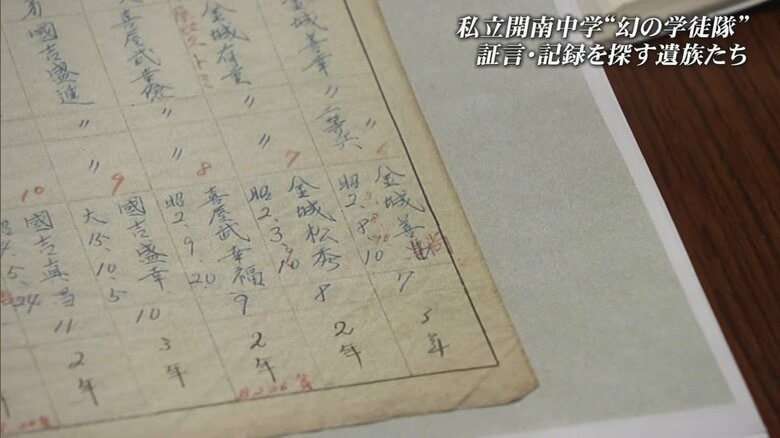 私立開南中学“幻の学徒隊”
証言・記録を探す遺族たち
金城善幸
〃 二等兵
金城有
〃
喜屋武幸
〃
國吉盛進
〃
6
金城善
昭2.8.10
7
3年
7
金城松
昭2.3.10
8
2年
8
喜屋武幸福
昭2.9.20
9
2年
9
國吉盛幸
大15.10.5
10
3年
10
國吉真
4.5.24
11
2年
年